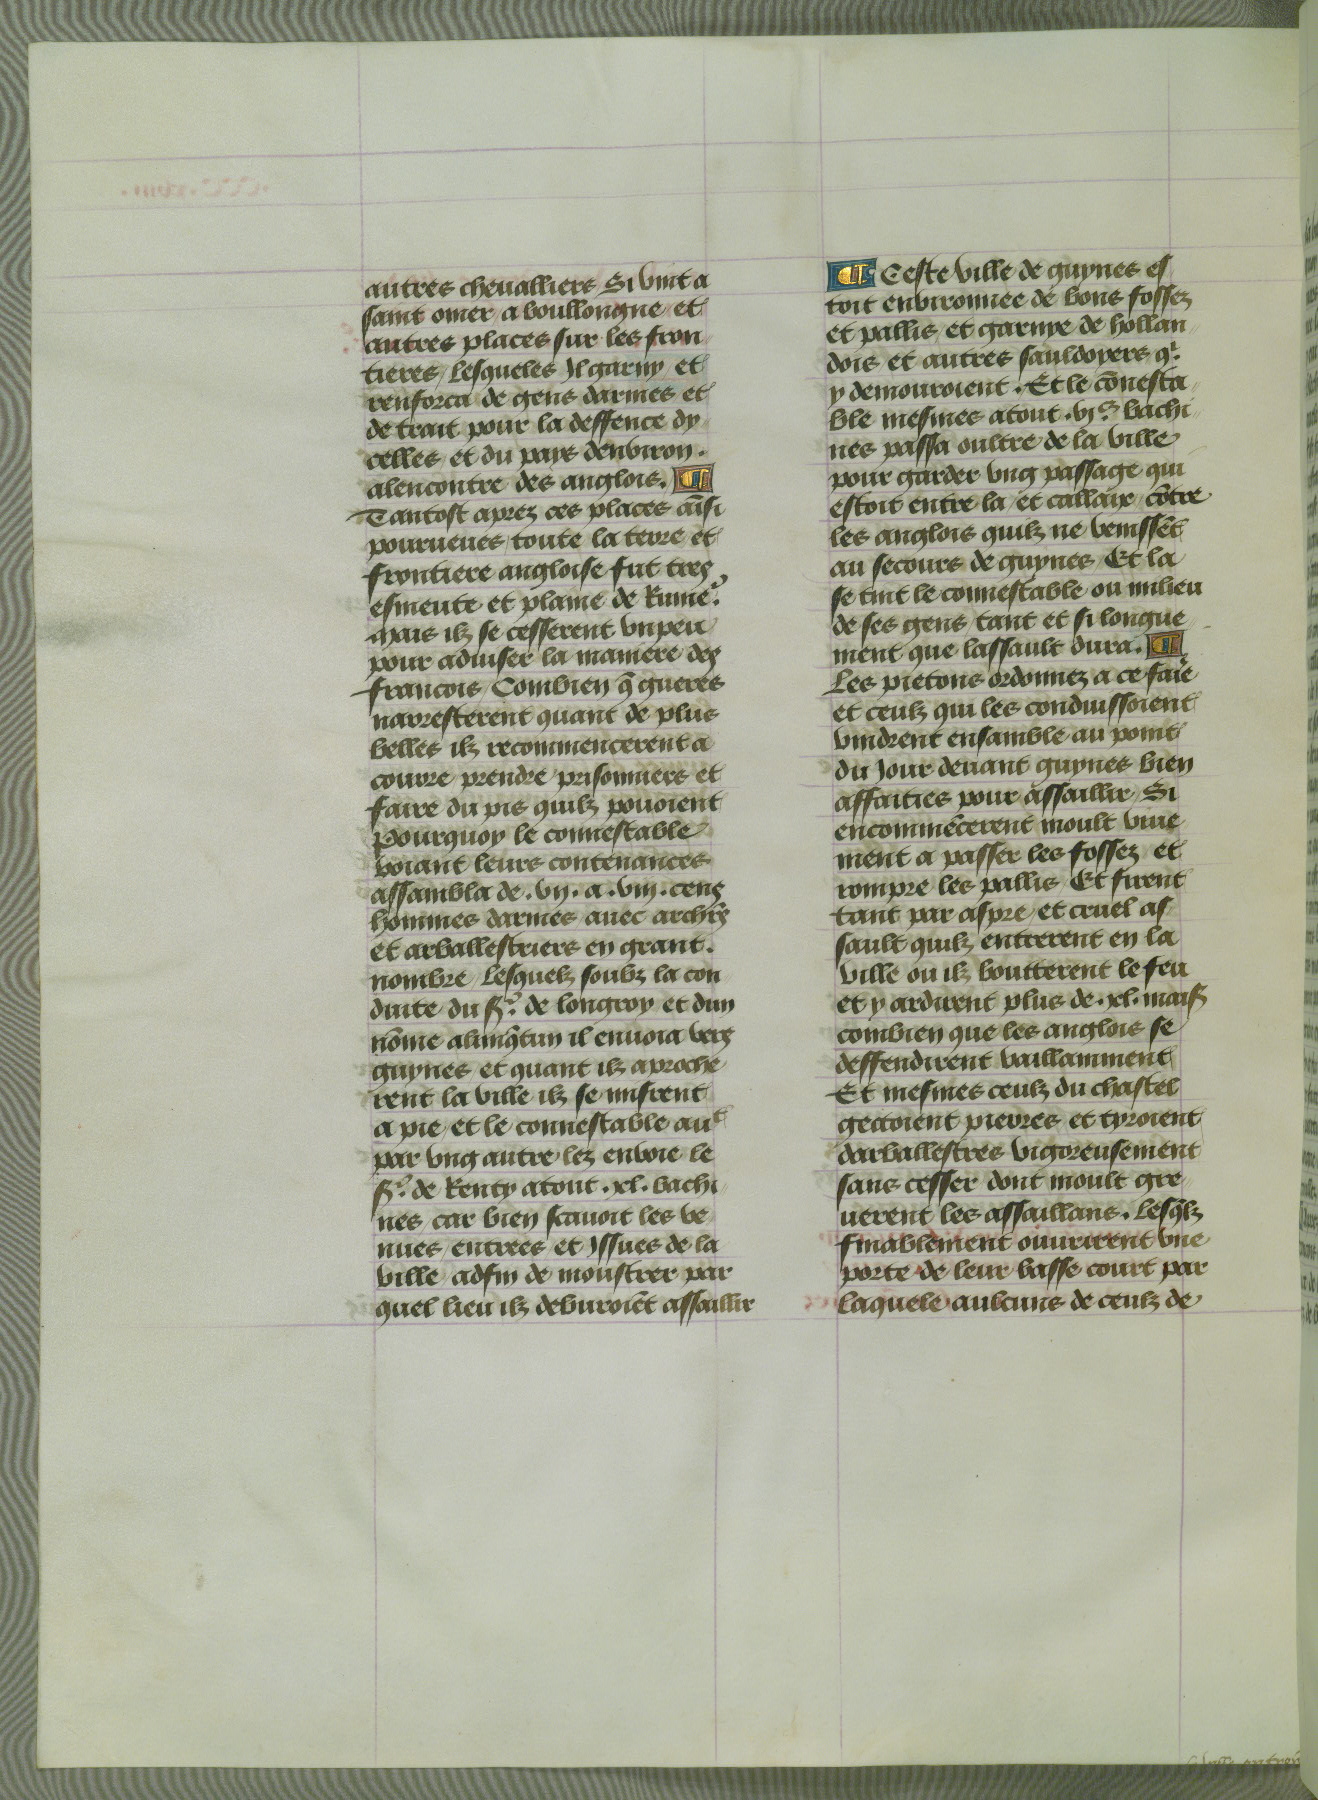 autres cheualliers Si vint a
saint omer a boullongne et
autres places sur les fron
tieres lesqueles Il garny et
renforca de gens darmes et
de trait pour la deffence dy
celles et du pays denviron.
alencontre des anglois. ¶
Tantost aprez ces places ainsi
pourueues toute la terre et
frontiere angloise fut trez
esmeute et plaine de Rume².
Mais ilz se cesserent vn peu
pour aduiser la maniere dez
francois Combien q̄ gueres
narresterent quant de plus
belles ilz recommencerent a
courre prendre prisonniers et
faire du pis quilz pouoient
Pourquoy le connestable
voiant leurs contenances
assambla de .vij. a .viij. cenz
hommes darmes auec archrs̄
et arballestriers en grant.
nombre Lesquelz soubz la con
duite du sr̄ de longroy et dun
nōme alinq̄tun il enuoia verz
guynes et quant ilz aproche
rent la ville ilz se misrent
a pie et le connestable aut
par vng autre lez enuoie le
sr̄ de Renty atout .xl. bachi
nes car bien scauoit les ve
nues entrees et Issues de la
ville adfin de moustrer par
quel lieu ilz deburoiēt assaillir
¶ Ceste ville de guynes es
toit environnee de bons fossez
et pallis et garnye de hollan
dois et autres sauldoyers qⁱ
y demouroient. Et le cōnesta
ble mesmes atout .vjc bachi
nes passa oultre de la ville
pour garder vng passage qui
estoit entre la et callaix cōtre
les anglois quilz ne venissēt
au secours de guynes Et la
se tint le connestable ou milieu
de ses gens tant et si longue
ment que lassault dura. ¶
Les pietons ordonnez a ce faiē
et ceulz qui les conduissoient
vindrent ensamble au point
du Jour deuant guynes bien
affaities pour assaillir Si
encommēcerent moult viue
ment a passer les fossez et
rompre les pallis Et firent
tant par aspre et cruel as
sault quilz entrerent en la
ville ou ilz boutterent le feu
et y ardirent plus de .xl. mais̄
combien que les anglois se
deffendirent vaillamment
Et mesmes ceulz du chastel
gectoient pierres et tyroient
darballestres vigoreusement
sans cesser dont moult gre
uerent les assaillans. Lesq̄lz
finablement ouurirent vne
porte de leur basse court par
laquele aulcuns de ceulz de